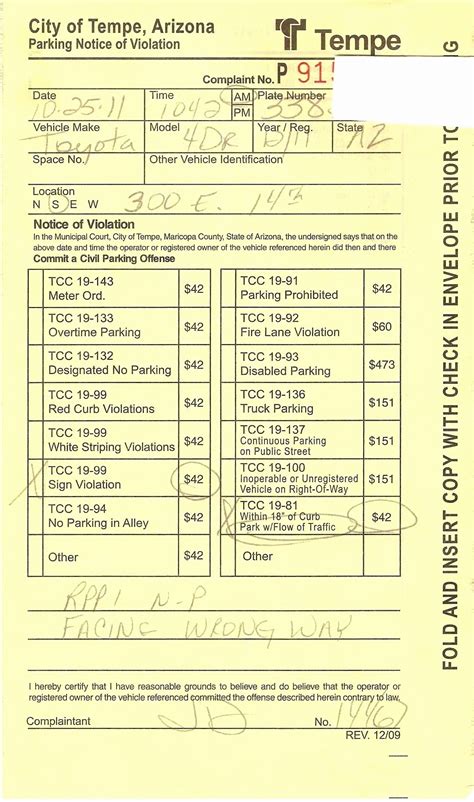 City of Tempe, Arizona
Parking Notice of Violation
Tempe
Complaint No. P 915
Date Time AM PM Plate Number
10-25-11 1042 338
Vehicle Make Model Year / Reg. State
Toyota 4DR AZ
Space No. Other Vehicle Identification
Location
N S E W 300 E. 14th
Notice of Violation
In the Municipal Court, City of Tempe, Maricopa County, State of Arizona, the undersigned says that on the
above date and time the operator or registered owner of the vehicle referenced herein did then and there
Commit a Civil Parking Offense
TCC 19-143
Meter Ord. $42
TCC 19-133
Overtime Parking $42
TCC 19-132
Designated No Parking $42
TCC 19-99
Red Curb Violations $42
TCC 19-99
White Striping Violations $42
X TCC 19-99
Sign Violation $42
TCC 19-94
No Parking in Alley $42
Other $42
TCC 19-91
Parking Prohibited $42
TCC 19-92
Fire Lane Violation $60
TCC 19-93
Disabled Parking $473
TCC 19-136
Truck Parking $151
TCC 19-137
Continuous Parking
on Public Street $151
TCC 19-100
Inoperable or Unregistered
Vehicle on Right-Of-Way $151
X TCC 19-81
Within 18" of Curb
Park w/Flow of Traffic $42
Other
RPP1 N-P
FACING WRONG WAY
I hereby certify that I have reasonable grounds to believe and do believe that the operator or
registered owner of the vehicle referenced committed the offense described herein contrary to law.
Complainant JD No. 1446
REV. 12/09
FOLD AND INSERT COPY WITH CHECK IN ENVELOPE PRIOR TO